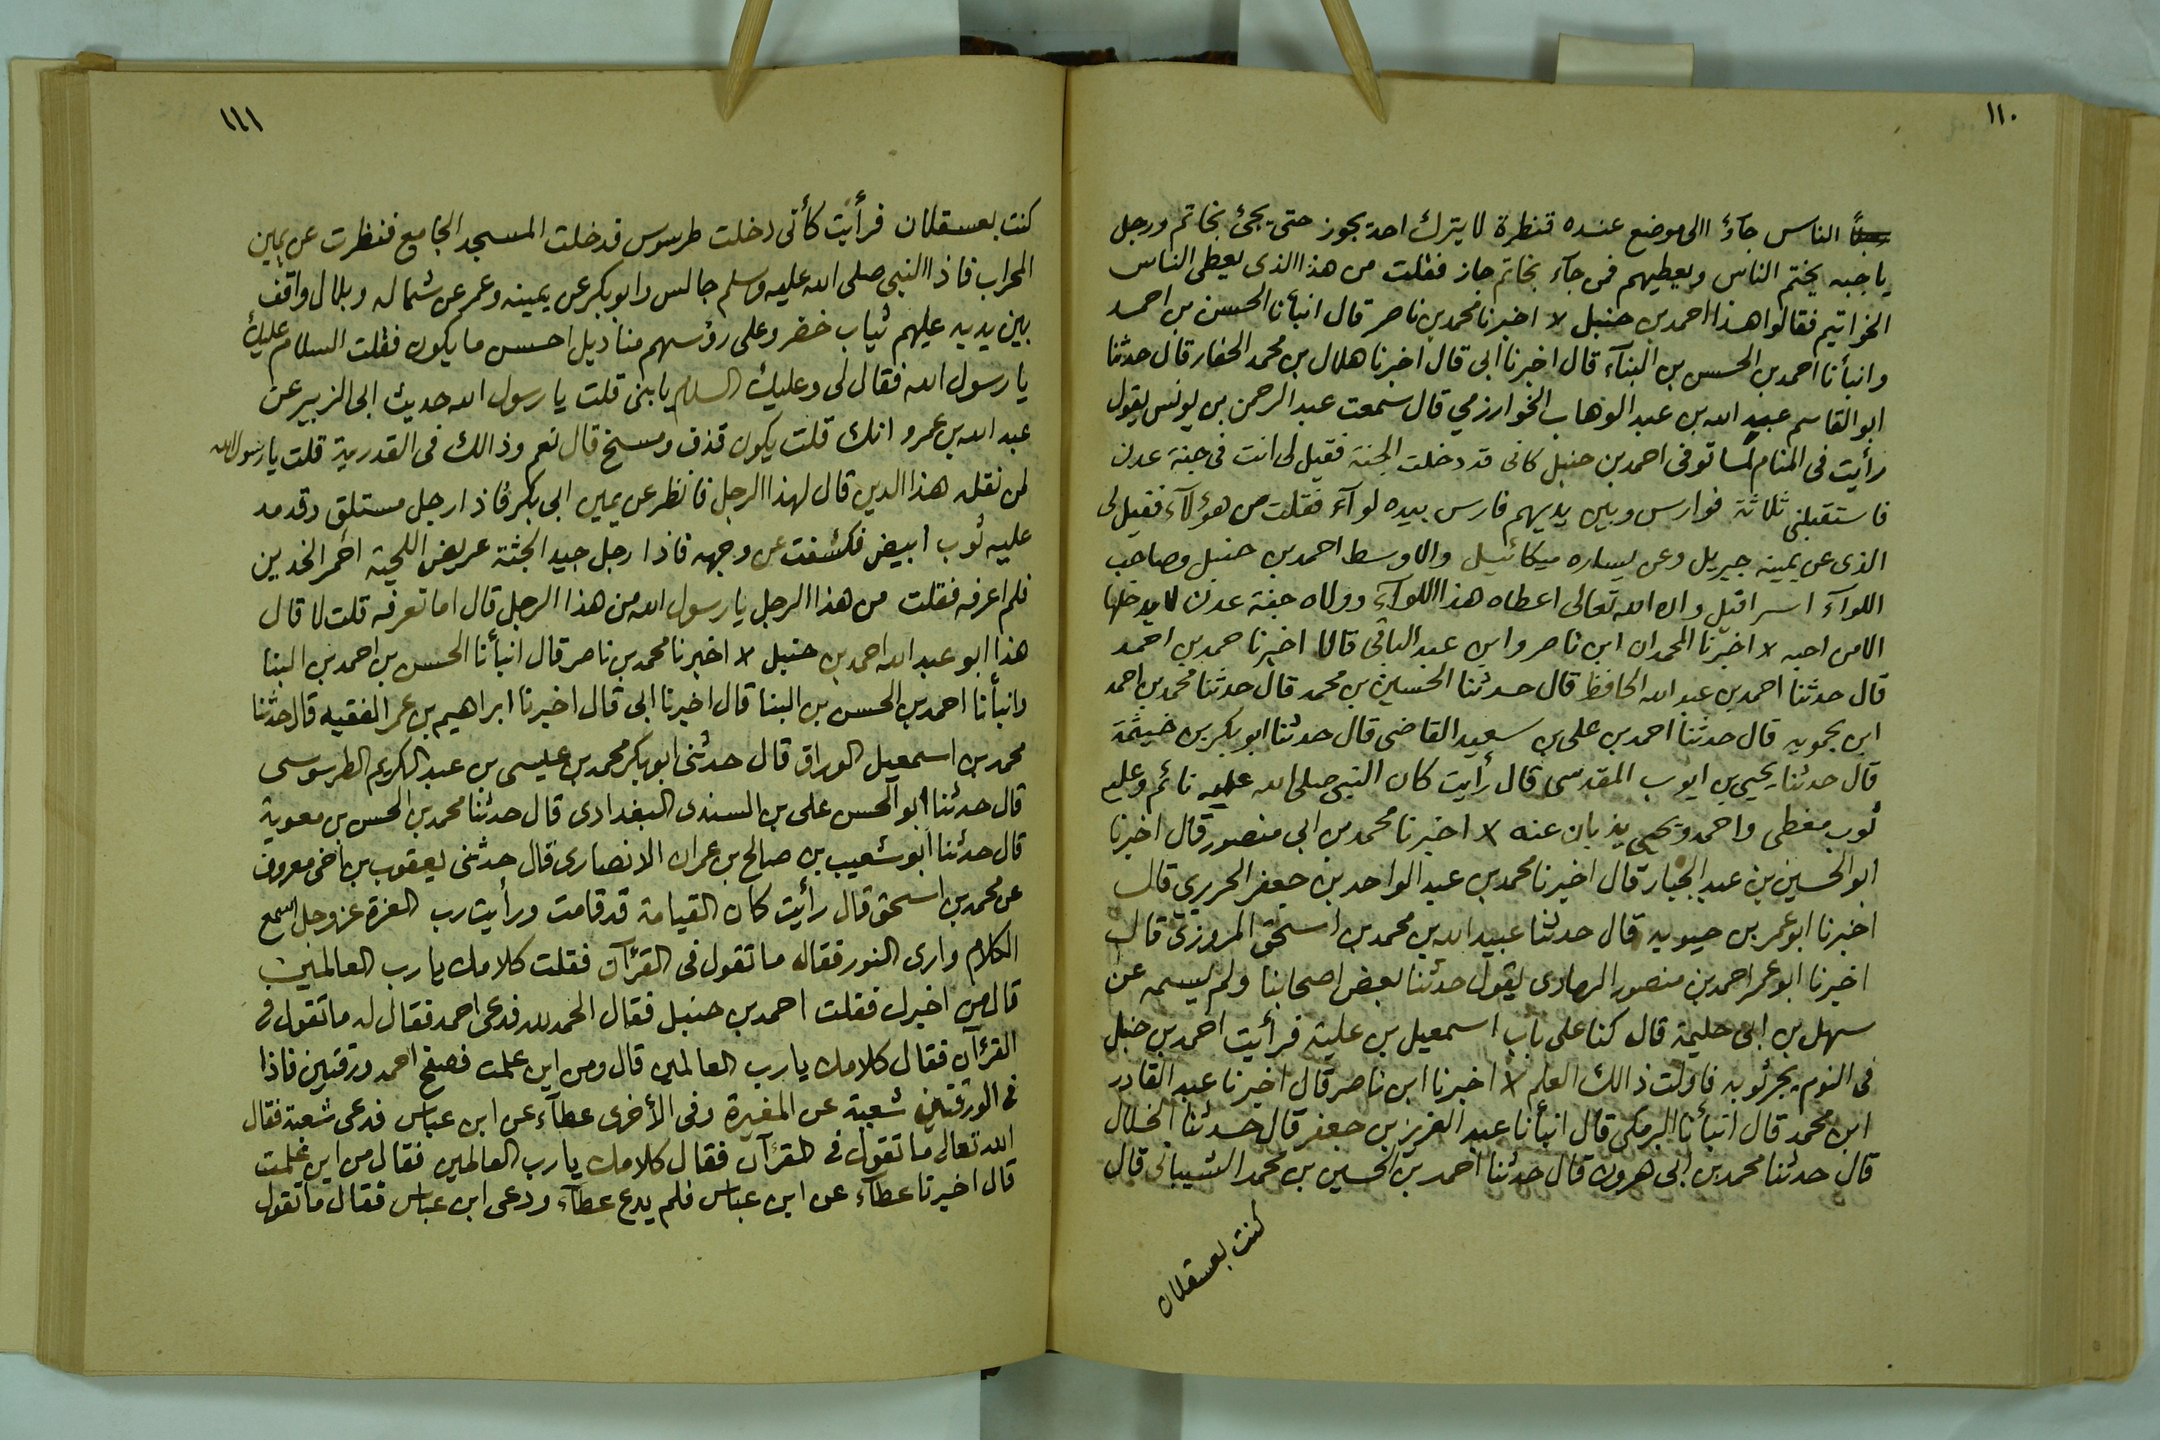 ١١٠
الناس جآؤ الى موضع عنده قنطرة لا يترك احد يجوز حتى يجئ بخاتم ورجل
يا جبه يختم الناس ويعطيهم فمن جآء بخاتم جاز فقلت من هذا الذى يعطى الناس
الخواتيم فقالوا هذا احمد بن حنبل لا اخبرنا محمد بن ناصر قال انبأنا الحسن بن احمد
وانبأنا احمد بن الحسن بن البنآء قال اخبرنا ابى قال اخبرنا هلال بن محمد الحفار قال حدثنا
ابو القاسم عبيد الله بن عبد الوهاب الخوارزمي قال سمعت عبد الرحمن بن يونس يقول
رأيت فى المنام لما توفى احمد بن حنبل كانى قد دخلت الجنة فقيل لى انت فى جنة عدن
فاستقبلنى ثلاثة فوارس وبين يديهم فارس بيده لوآء فقلت من هؤلآء فقيل لى
الذى عن يمينه جبريل وعن يساره ميكائيل والاوسط احمد بن حنبل وصاحب
اللوآء اسرافيل وان الله تعالى اعطاه هذا اللوآء وولاه جنة عدن لا يدخلها
الا من احبه لا اخبرنا المحمدان ابن ناصر وابن عبد الباقى قالا اخبرنا حمد بن احمد
قال حدثنا احمد بن عبد الله الحافظ قال حدثنا الحسين بن محمد قال حدثنا محمد بن احمد
ابن بحمويه قال حدثنا احمد بن على بن سعيد القاضى قال حدثنا ابو بكر بن خيثمة
قال حدثنا يحيى بن ايوب المقدسى قال رأيت كان النبى صلى الله عليه نائم وعليه
ثوب مغطى واحمد ويحيى يذبان عنه لا اخبرنا محمد بن ابى منصور قال اخبرنا
ابو الحسين بن عبد الجبار قال اخبرنا محمد بن عبد الواحد بن جعفر الحريري قال
اخبرنا ابو عمر بن حيويه قال حدثنا عبيد الله بن محمد بن اسحق المروزى قال
اخبرنا ابو عمر احمد بن منصور الرمادى يقول حدثنا بعض اصحابنا ولم يسمه عن
سهل بن ابى حليمة قال كنا على باب اسمعيل بن علية فرأيت احمد بن حنبل
فى النوم يجر ثوبه فاولت ذالك العلم لا اخبرنا ابن ناصر قال اخبرنا عبد القادر
ابن محمد قال انبأنا البرمكى قال انبأنا عبد العزيز بن جعفر قال حدثنا الخلال
قال حدثنا محمد بن ابى هرون قال حدثنا احمد بن الحسين بن محمد الشيبانى قال
كنت بعسقلان
١١١
كنت بعسقلان فرأيت كأنى دخلت طرسوس فدخلت المسجد الجامع فنظرت عن يمين
المحراب فاذا النبى صلى الله عليه وسلم جالس وابو بكر عن يمينه وعمر عن شماله وبلال واقف
بين يديه عليهم ثياب خضر وعلى رؤسهم مناديل احسن ما يكون فقلت السلام عليك
يا رسول الله فقال لى وعليك السلام يا بنى قلت يا رسول الله حديث ابى الزبير عن
عبد الله بن عمرو انك قلت يكون قذف ومسخ قال نعم وذالك فى القدرية قلت يا رسول الله
لمن نقله هذا الدين قال لهذا الرجل فانظر عن يمين ابى بكر فاذا رجل مستلق وقد مد
عليه ثوب ابيض فكشفت عن وجهه فاذا رجل جيد الجثة عريض اللحية احمر الخدين
فلم اعرفه فقلت من هذا الرجل يا رسول الله من هذا الرجل قال اما تعرفه قلت لا قال
هذا ابو عبد الله احمد بن حنبل لا اخبرنا محمد بن ناصر قال انبأنا الحسن بن احمد بن البنا
وانبأنا احمد بن الحسن بن البنا قال اخبرنا ابى قال اخبرنا ابراهيم بن عمر الفقيه قال حدثنا
محمد بن اسمعيل الوراق قال حدثنى ابو بكر محمد بن عيسى بن عبد الكريم الطرسوسى
قال حدثنا ابو الحسن على بن السندى البغدادى قال حدثنا محمد بن الحسن بن معوية
قال حدثنا ابو شعيب بن صالح بن عمران الانصارى قال حدثنى يعقوب بن اخى معروف
عن محمد بن اسحق قال رأيت كان القيامة قد قامت ورأيت رب العزة عز وجل اسمع
الكلام وارى النور فقال ما تقول فى القرآن فقلت كلامك يا رب العالمين
قال من اخبرك فقلت احمد بن حنبل فقال الحمد لله فدعى احمد فقال له ما تقول فى
القرءآن فقال كلامك يا رب العالمين قال ومن اين علمت فصفح احمد ورقتين فاذا
فى الورقتين شعبة عن المغيرة وفى الأخرى عطآء عن ابن عباس فدعى شعبة فقال
الله تعالى ما تقول فى القرآن فقال كلامك يا رب العالمين فقال من اين علمت
قال اخبرنا عطآء عن ابن عباس فلم يدع عطآء ودعى ابن عباس فقال ما تقول